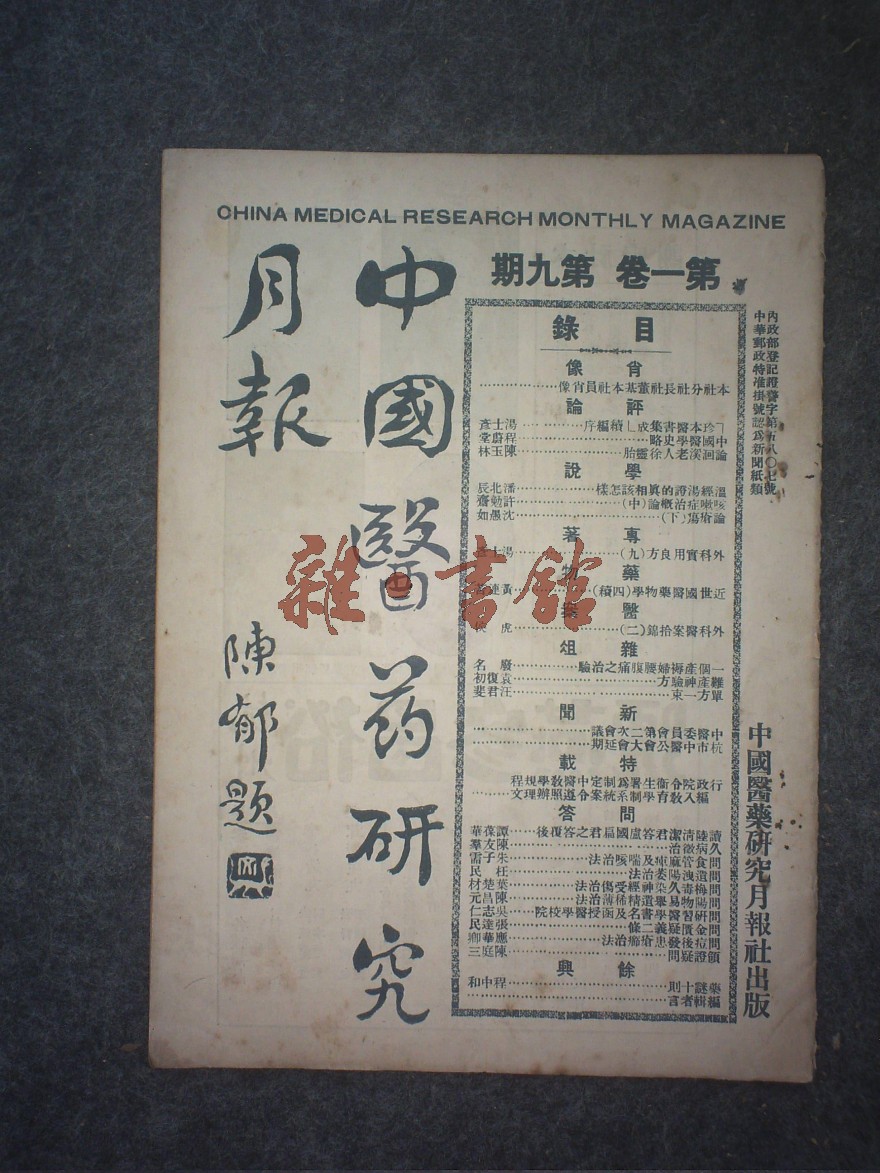 CHINA MEDICAL RESEARCH MONTHLY MAGAZINE
第一卷 第九期
內政部登記證警字第五八〇七號
中華郵政特准掛號認為新聞紙類
目錄
肖像
本社分社長社董基本社員肖像
評論
「珍本醫書集成」續編序 湯士彥
中國醫學史略 程蔚堂
論洄溪老人徐靈胎 陳玉林
學說
溫經湯證的真相該怎樣 潘北辰
咳嗽症治概論(中) 許勉齋
論瘡瘍(下) 沈愚如
專著
外科實用良方(九) 湯士
藥物
近世國醫藥物學(四續) 黃連
醫案
外科醫案拾錦(二) 虎
雜俎
一個產褥婦腰腹痛之治驗 廢名
難產神驗方 袁復初
單方一束 汪君斐
新聞
中醫委員會第二次會議
杭市中醫公會大會延期
特載
行政院令衞生署為制定中醫教學規程
編入教育學制系統案令遵照辦理文
問答
讀陸清潔君答盧國福君之答復後 譚葆華
久病徵治 陳友羣
問食管麻痺及喘咳治法 朱子需
問遺洩陽萎治法 汪民
問梅 神經受傷治法 葉楚材
問陽 遺精稀薄治法 陳昌元
問研習醫書名及函授醫學校院 吳志仁
問金匱疑義二條 張達民
問痘後發瘡患 治法 應華鄉
領證疑問 陳庭三
餘興
藥謎十則 程中和
編輯者言
中國醫藥研究月報社出版
中國醫药研究
月報
陳郁題
雜·書館